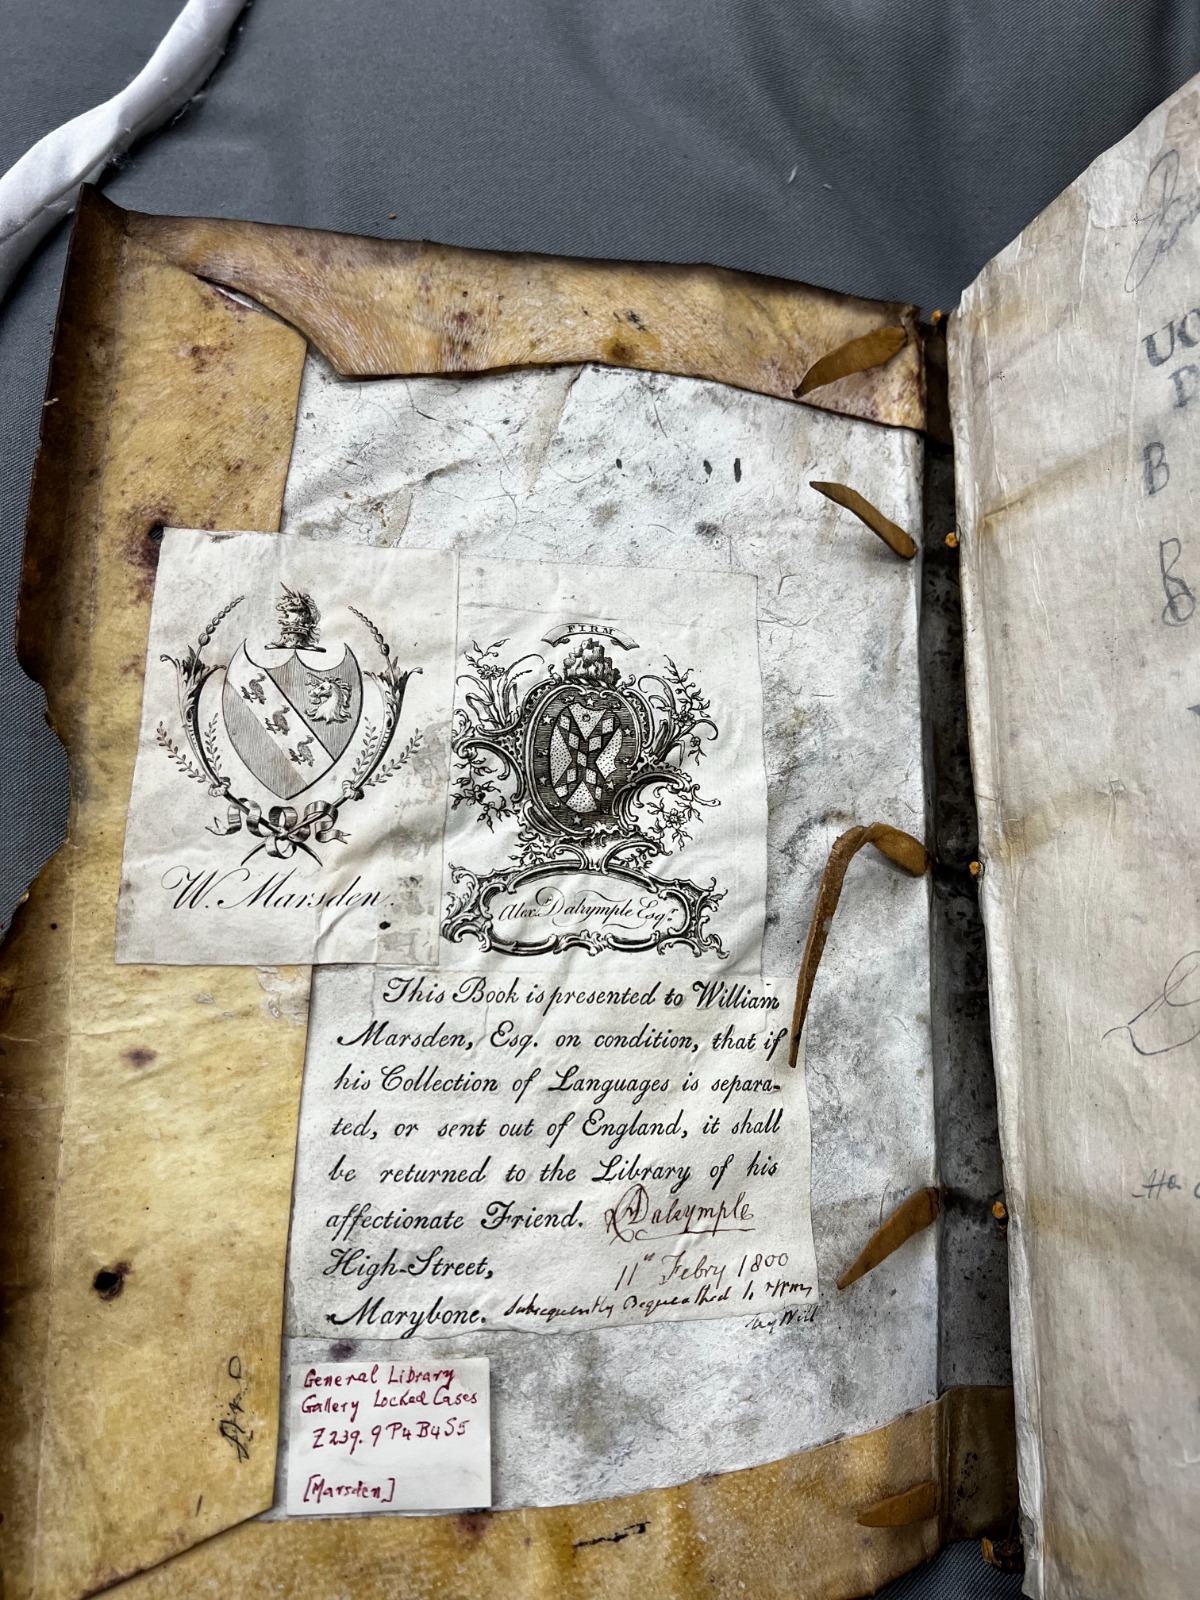 FIRM
W. Marsden.
Alexr. Dalrymple Esqr.
This Book is presented to William
Marsden, Esq. on condition, that if
his Collection of Languages is separa-
ted, or sent out of England, it shall
be returned to the Library of his
affectionate Friend. Dalrymple
High-Street, 11th Febry 1800
Marybone. Subsequently Bequeathed to
by Will
General Library
Gallery Locked Cases
Z239.9 P4 B4 S5
[Marsden]
B